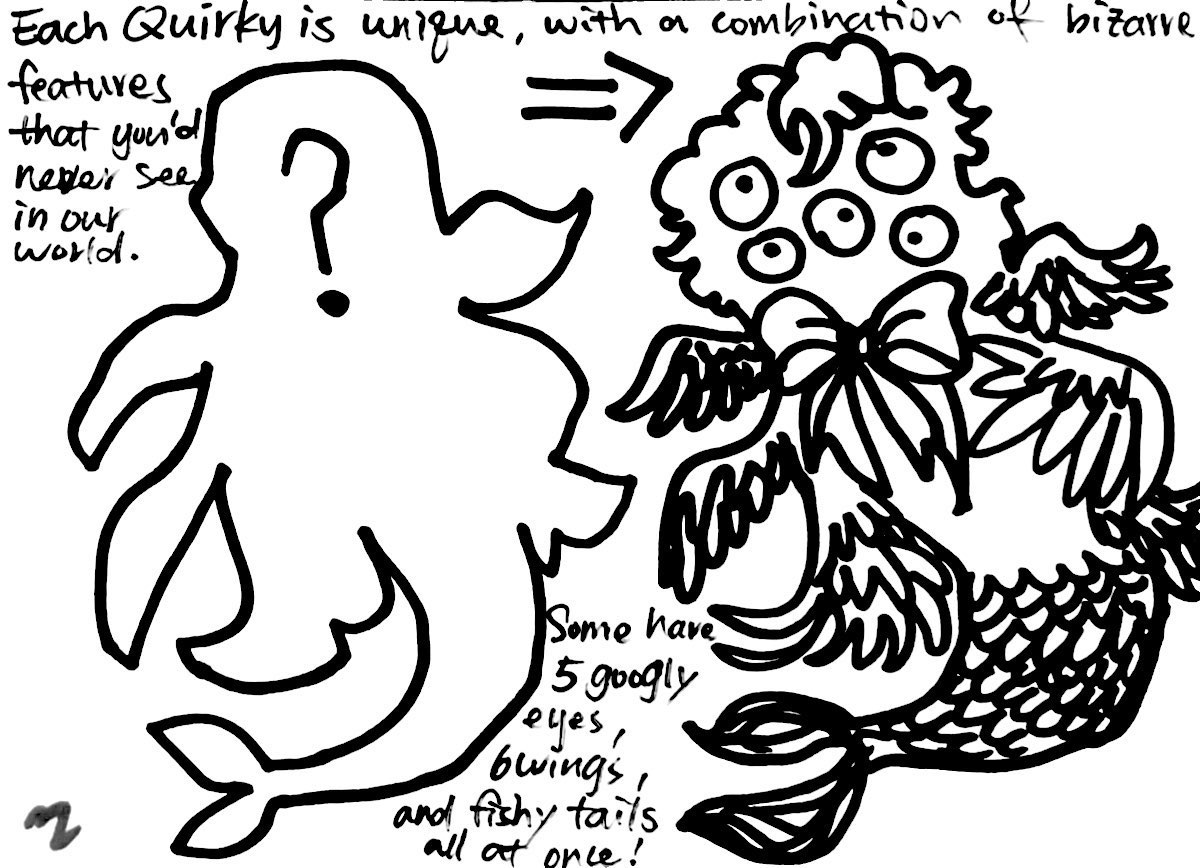 Each Quirky is unique, with a combination of bizarre
features
that you'd
never see
in our
world.
?
Some have
5 googly
eyes,
6 wings,
and fishy tails
all at once!